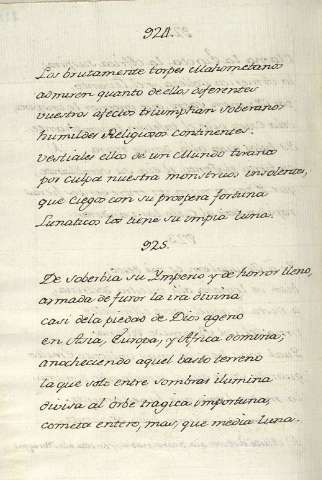 924.
Los brutamente torpes Mahometanos
admiren quanto de ellos diferentes
vuestros afectos triumphan soberanos
humildes Religiosos continentes.
vestiales ellos de un Mundo tiranos
por culpa nuestra monstruos insolentes,
que ciegos con su prospera fortuna
Lunaticos los tiene su impia luna.
925.
De soberbia su Ymperio y de horror lleno,
armada de furor la ira divina
casi dela piedad de Dios ageno
en Asia, Europa, y Africa domina;
anocheciendo aquel basto terreno
la que solo entre sombras ilumina
divisa al òrbe tragica importuna,
cometa entero, mas, que media luna.